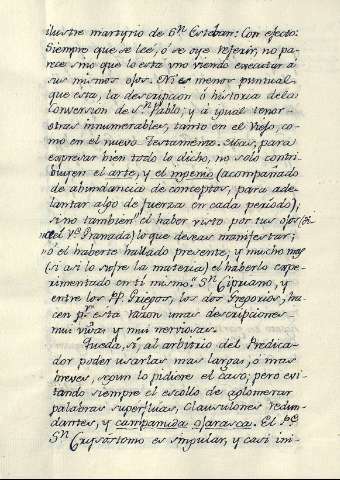 ilustre martyrio de Sn. Estéban: Con efecto:
Siempre que se lee, ó se oye referir, no pa-
rece sino que lo está uno viendo executar á
sus mismos ojos. Ni es menor puntual
que esta, la descripcion ó historia dela
conversion de Sn. Pablo; y á igual tenor
otras innumerables, tanto en el Viejo, co-
mo en el nuevo Testamento. Mas, para
expresar bien todo lo dicho, no solo contri-
buyen el arte, y el ingenio (acompañado
de abundancia de conceptos, para ade-
lantar algo de fuerza en cada periodo);
sino tambien "el haber visto por tus ojos (di-
ce el Ve. Granada) lo que deseas manifestar;
ó el haberte hallado presente, y mucho mas
(si asi lo sufre la materia) el haberlo expe-
rimentado en ti mismo." Sn. Cipriano, y
entre los PP. Griegos, los dos Gregorios, ha-
cen pr. esta razon unas descripciones
mui vivas y mui nerviosas.
Queda, si, al arbitrio del Predica-
dor poder usarlas mas largas, ó mas
breves, segun lo pidiere el caso; pero evi-
tando siempre el escollo de aglomerar
palabras superfluas, clausulones redun-
dantes, y campanuda ojarasca. El Pe.
Sn. Crysostomo es singular, y casi ini-